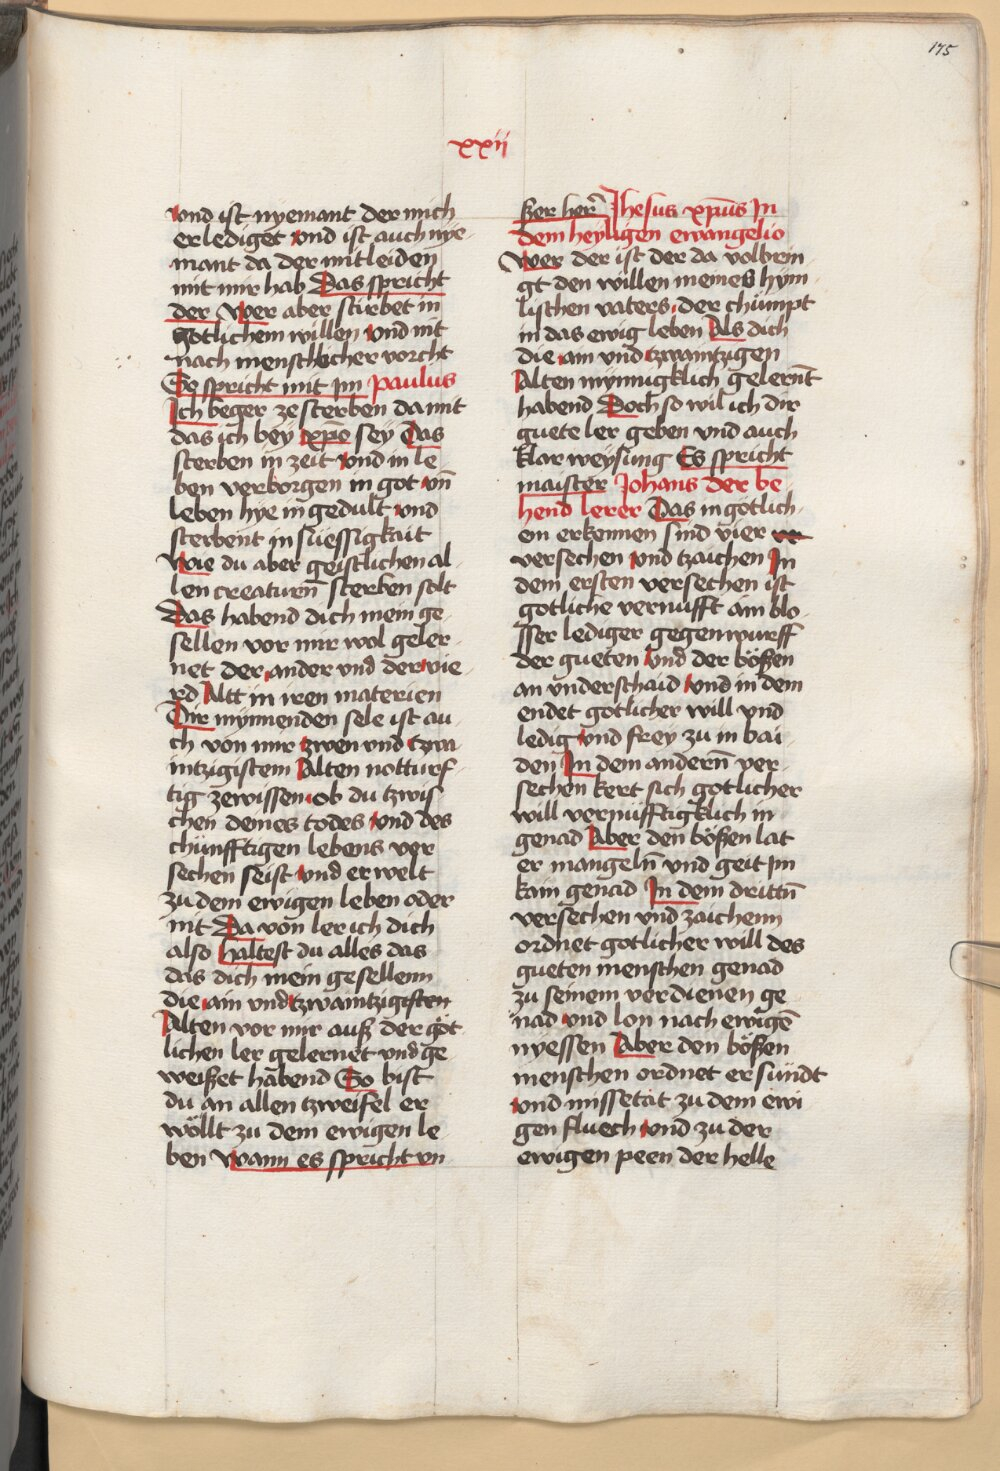 175
xxii
vnd ist nyemant der mich
erlediget vnd ist auch nye-
mant da der mitleiden
mit mir hab Das spricht
der Wer aber stirbet in
gotlichem willen vnd nit
nach menschlicher vorcht
So spricht mit im paulus
Ich beger ze sterben da mit
das ich bey xp̄o sey Das
sterben in zeit vnd in le
ben verborgen in got vn̄
leben hye in gedult vnd
sterbent in süessigkait
Wie du aber geistlichen al
len creaturn̄ sterben solt
Das habend dich mein ge-
sellen vor mir wol geler-
net der ander vnd der vie-
rd Altt in iren materien
Dir mynnenden sele ist au
ch von mir zwen vnd tzwa
intzigistem Alten notturf-
tig ze wissen ob du tzwis
chen deines todes vnd des
chünfftigen lebens ver
sechen seist vnd erwelt
zu dem ewigen leben oder
nit Da von ler ich dich
also haltest du alles das
das dich mein gesellenn
die ain vnd tzwaintzigisten
Alten vor mir auß der göt
lichen ler gelernet vnd ge
weißet habend So bist
du an allen tzweifel er
wöllt zu dem ewigen le
ben Wann es spricht vn
ßer her̄ Jhesus xpūs In
dem heyligen ewangelio
Wer der ist der da volbrin-
gt den willen meines hym
lischen vaters der chümpt
in das ewig leben Als dich
die ain vnd tzwaintzigen
Alten mynnigklich gelernt
habend Doch so wil ich dir
guete ler geben vnd auch
klar weysung Es spricht
maister Johans der be
hend lerer Das in götlich-
en erkennen sind vier
versechen vnd tzaichen In
dem ersten versechen ist
gotliche vernüfft ain blo-
sser lediger gegenwurff
der gueten vnd der bößen
an vnderschaid vnd in dem
endet gotlicher will vnd
ledig vnd frey zu in bai-
den In dem andern̄ ver-
sechen kert sich gotlicher
will vernüfftigklich in
genad Aber den bößen lat
er mangeln̄ vnd geit im
kain genad In dem drittn̄
versechen vnd zaichenn
ordnet gotlicher will des
gueten menschen genad
zu seinem verdienen ge
nad vnd lon nach ewigē
nyessen Aber den bößen
menschen ordnet er sündt
vnd missetat zu dem ewi
gen fluech vnd zu der
ewigen peen der helle